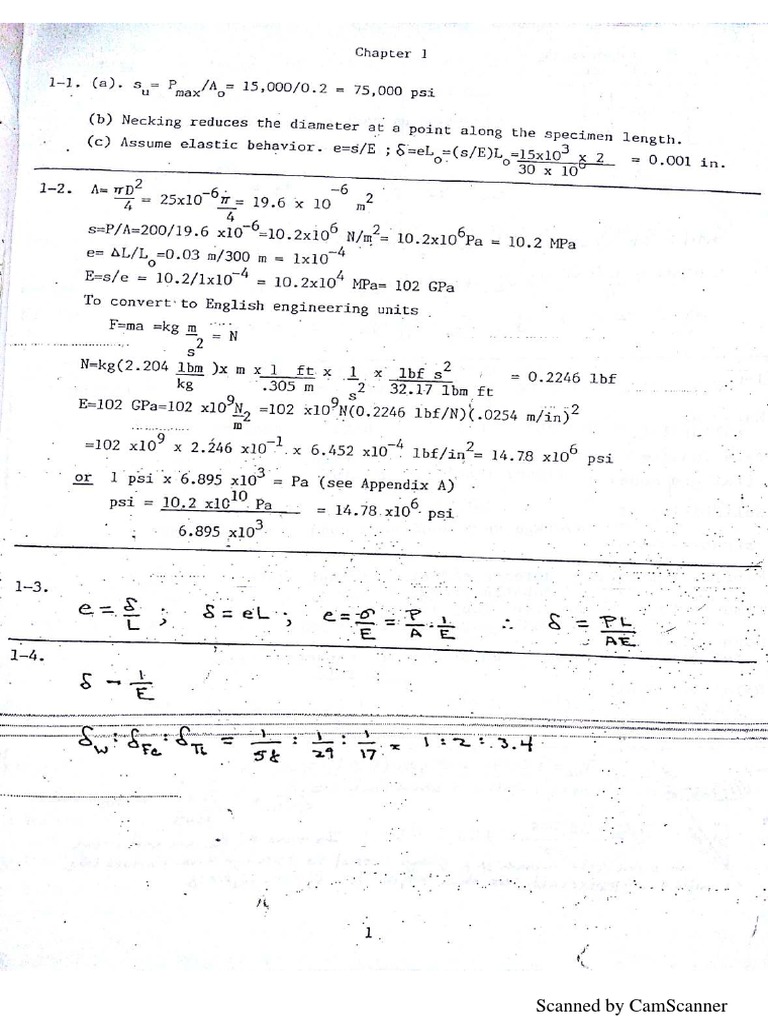 Chapter 1
1-1. (a). s_u = P_max/A_o = 15,000/0.2 = 75,000 psi
(b) Necking reduces the diameter at a point along the specimen length.
(c) Assume elastic behavior. e=s/E ; δ=eL_o =(s/E)L_o = 15x10^3 / 30 x 10^6 x 2 = 0.001 in.
1-2. A= πD^2/4 = 25x10^-6 π/4 = 19.6 x 10^-6 m^2
s=P/A=200/19.6 x10^-6=10.2x10^6 N/m^2= 10.2x10^6Pa = 10.2 MPa
e= ΔL/L_o=0.03 m/300 m = 1x10^-4
E=s/e = 10.2/1x10^-4 = 10.2x10^4 MPa= 102 GPa
To convert to English engineering units
F=ma =kg m/s^2 = N
N=kg(2.204 lbm/kg )x m x 1/.305 ft/m x 1/s^2 x lbf s^2/32.17 lbm ft = 0.2246 lbf
E=102 GPa=102 x10^9 N/m^2 =102 x10^9N(0.2246 lbf/N)(.0254 m/in)^2
=102 x10^9 x 2.246 x10^-1 x 6.452 x10^-4 lbf/in^2= 14.78 x10^6 psi
or 1 psi x 6.895 x10^3 = Pa (see Appendix A)
psi = 10.2 x10^10 Pa / 6.895 x10^3 = 14.78 x10^6 psi
1-3.
e = δ/L ; δ = eL ; e = σ/E = P/A · 1/E ∴ δ = PL/AE
1-4.
δ ~ 1/E
δ_W : δ_Fe : δ_Ti = 1/58 : 1/29 : 1/17 = 1 : 2 : 3.4
1
Scanned by CamScanner